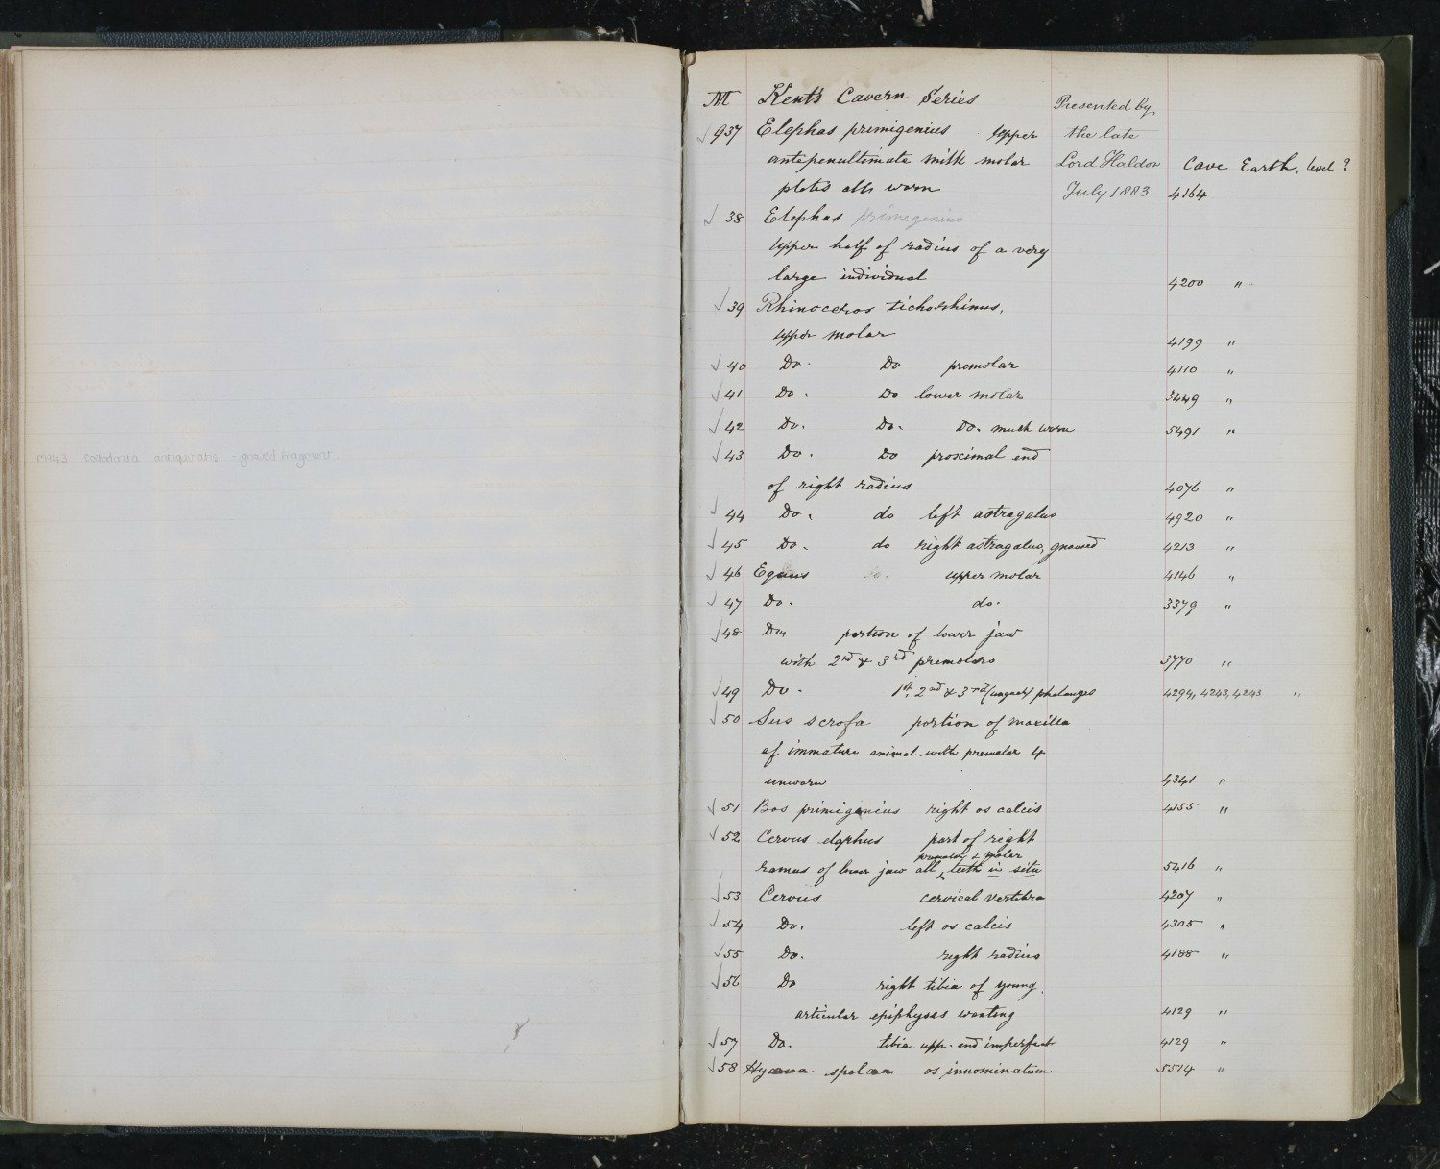 M43 Coelodonta antiquitatis - gnawed fragment.
M Kent's Cavern Series Presented by
937 Elephas primigenius Upper the late
antepenultimate milk molar Lord Haldon Cave Earth, level ?
plates all worn July 1883 4164
38 Elephas primigenius
Upper half of radius of a very
large individual 4200 "
39 Rhinoceros tichorhinus,
upper molar 4199 "
40 Do. Do premolar 4110 "
41 Do. Do lower molar 3449 "
42 Do. Do. Do. much worn 5491 "
43 Do. Do proximal end
of right radius 4076 "
44 Do. do left astragalus 4920 "
45 Do. do right astragalus, gnawed 4213 "
46 Equus do. upper molar 4146 "
47 Do. do. 3379 "
48 Do. portion of lower jaw
with 2nd & 3rd premolars 3770 "
49 Do. 1st, 2nd & 3rd (ungual) phalanges 4294, 4243, 4243 "
50 Sus scrofa portion of maxilla
of immature animal with premolar 4
unworn 4341 "
51 Bos primigenius right os calcis 4155 "
52 Cervus elaphus part of right
premolar & molar
ramus of lower jaw all teeth in situ 5416 "
53 Cervus cervical vertebra 4207 "
54 Do. left os calcis 4305 "
55 Do. right radius 4188 "
56 Do right tibia of young,
articular epiphyses wanting 4129 "
57 Do. tibia upp. end imperfect 4129 "
58 Hyaena spelaea os innominatum 5514 "